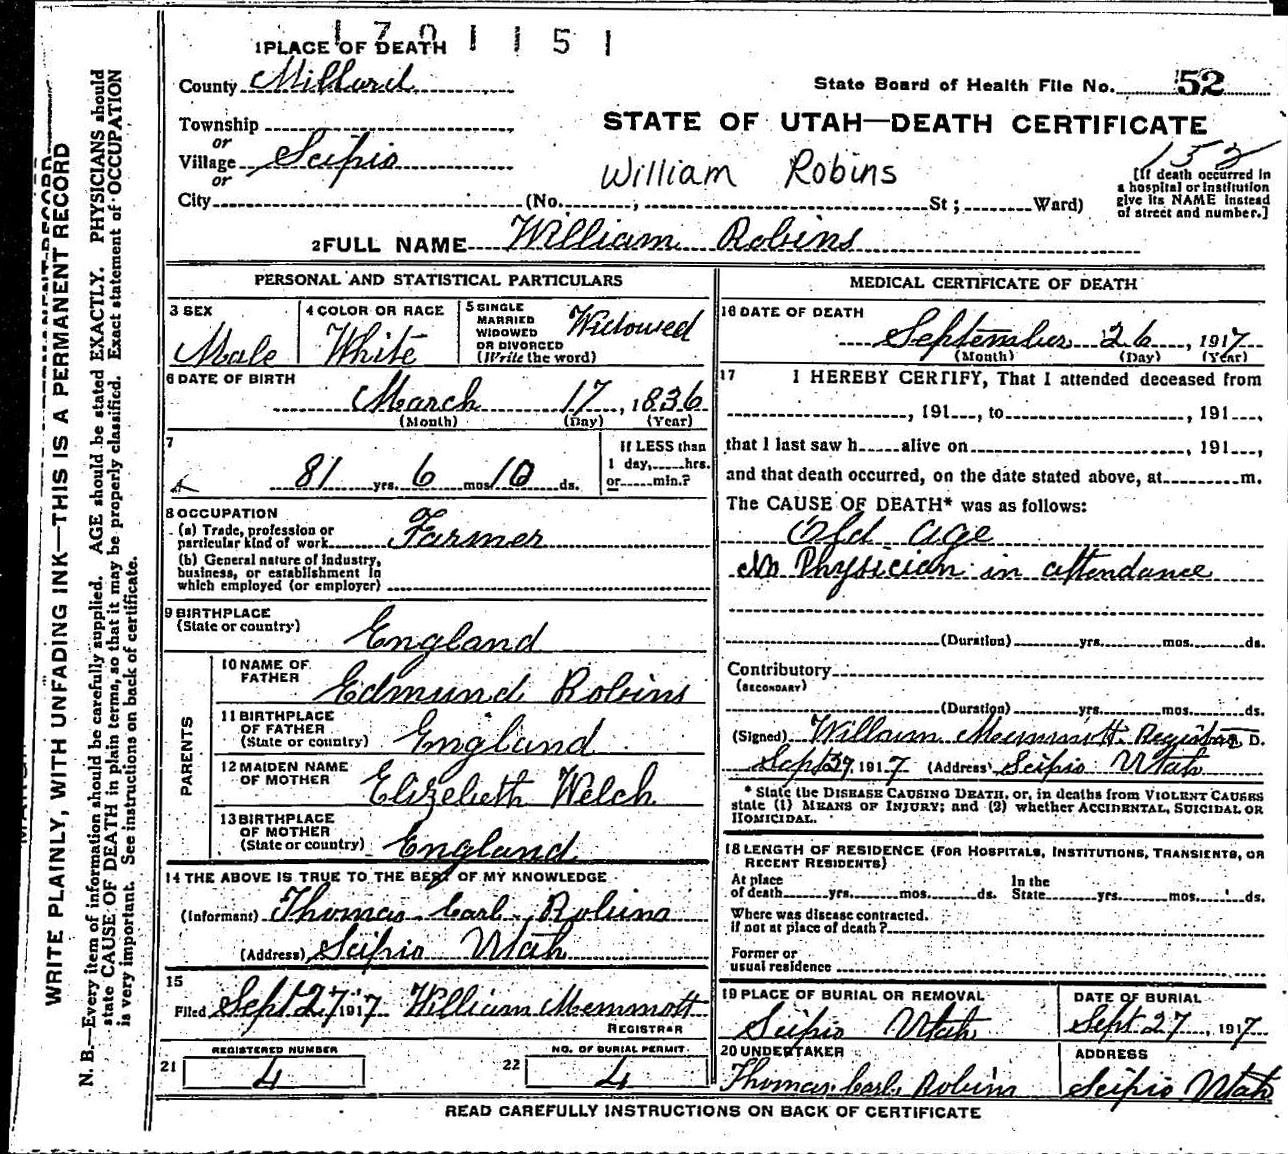 1701151
1 PLACE OF DEATH
County Millard
State Board of Health File No. 52
Township
or
Village Scipio
or
City (No. , St; Ward)
STATE OF UTAH—DEATH CERTIFICATE
William Robins
152
[If death occurred in
a hospital or institution
give its NAME instead
of street and number.]
2 FULL NAME William Robins
PERSONAL AND STATISTICAL PARTICULARS
3 SEX
Male
4 COLOR OR RACE
White
5 SINGLE
MARRIED
WIDOWED
OR DIVORCED
(Write the word)
Widowed
6 DATE OF BIRTH
March 17, 1836
(Month) (Day) (Year)
7
81 yrs. 6 mos 10 ds.
If LESS than
1 day, hrs.
or min.?
8 OCCUPATION
(a) Trade, profession or
particular kind of work Farmer
(b) General nature of industry,
business, or establishment in
which employed (or employer)
9 BIRTHPLACE
(State or country)
England
PARENTS
10 NAME OF
FATHER
Edmund Robins
11 BIRTHPLACE
OF FATHER
(State or country)
England
12 MAIDEN NAME
OF MOTHER
Elizebeth Welch
13 BIRTHPLACE
OF MOTHER
(State or country)
England
14 THE ABOVE IS TRUE TO THE BEST OF MY KNOWLEDGE
(Informant) Thomas Carl Robins
(Address) Scipio Utah
15
Filed Sept 27 1917 William Memmott
REGISTRAR
21
REGISTERED NUMBER
4
22
NO. OF BURIAL PERMIT.
4
MEDICAL CERTIFICATE OF DEATH
16 DATE OF DEATH
September 26, 1917
(Month) (Day) (Year)
17 I HEREBY CERTIFY, That I attended deceased from
, 191 , to , 191 ,
that I last saw h alive on , 191 ,
and that death occurred, on the date stated above, at m.
The CAUSE OF DEATH* was as follows:
Old age
No Physician in attendance
(Duration) yrs. mos. ds.
Contributory
(SECONDARY)
(Duration) yrs. mos. ds.
(Signed) William Memmott Registrar D.
Sept 27 1917 (Address) Scipio Utah
* State the DISEASE CAUSING DEATH, or, in deaths from VIOLENT CAUSES
state (1) MEANS OF INJURY; and (2) whether ACCIDENTAL, SUICIDAL OR
HOMICIDAL.
18 LENGTH OF RESIDENCE (FOR HOSPITALS, INSTITUTIONS, TRANSIENTS, OR
RECENT RESIDENTS)
At place
of death yrs. mos. ds.
In the
State yrs. mos. ds.
Where was disease contracted.
if not at place of death?
Former or
usual residence
19 PLACE OF BURIAL OR REMOVAL
Scipio Utah
DATE OF BURIAL
Sept 27, 1917
20 UNDERTAKER
Thomas Carl Robins
ADDRESS
Scipio Utah
READ CAREFULLY INSTRUCTIONS ON BACK OF CERTIFICATE
WRITE PLAINLY, WITH UNFADING INK—THIS IS A PERMANENT RECORD
N. B.—Every item of information should be carefully supplied. AGE should be stated EXACTLY. PHYSICIANS should
state CAUSE OF DEATH in plain terms, so that it may be properly classified. Exact statement of OCCUPATION
is very important. See instructions on back of certificate.